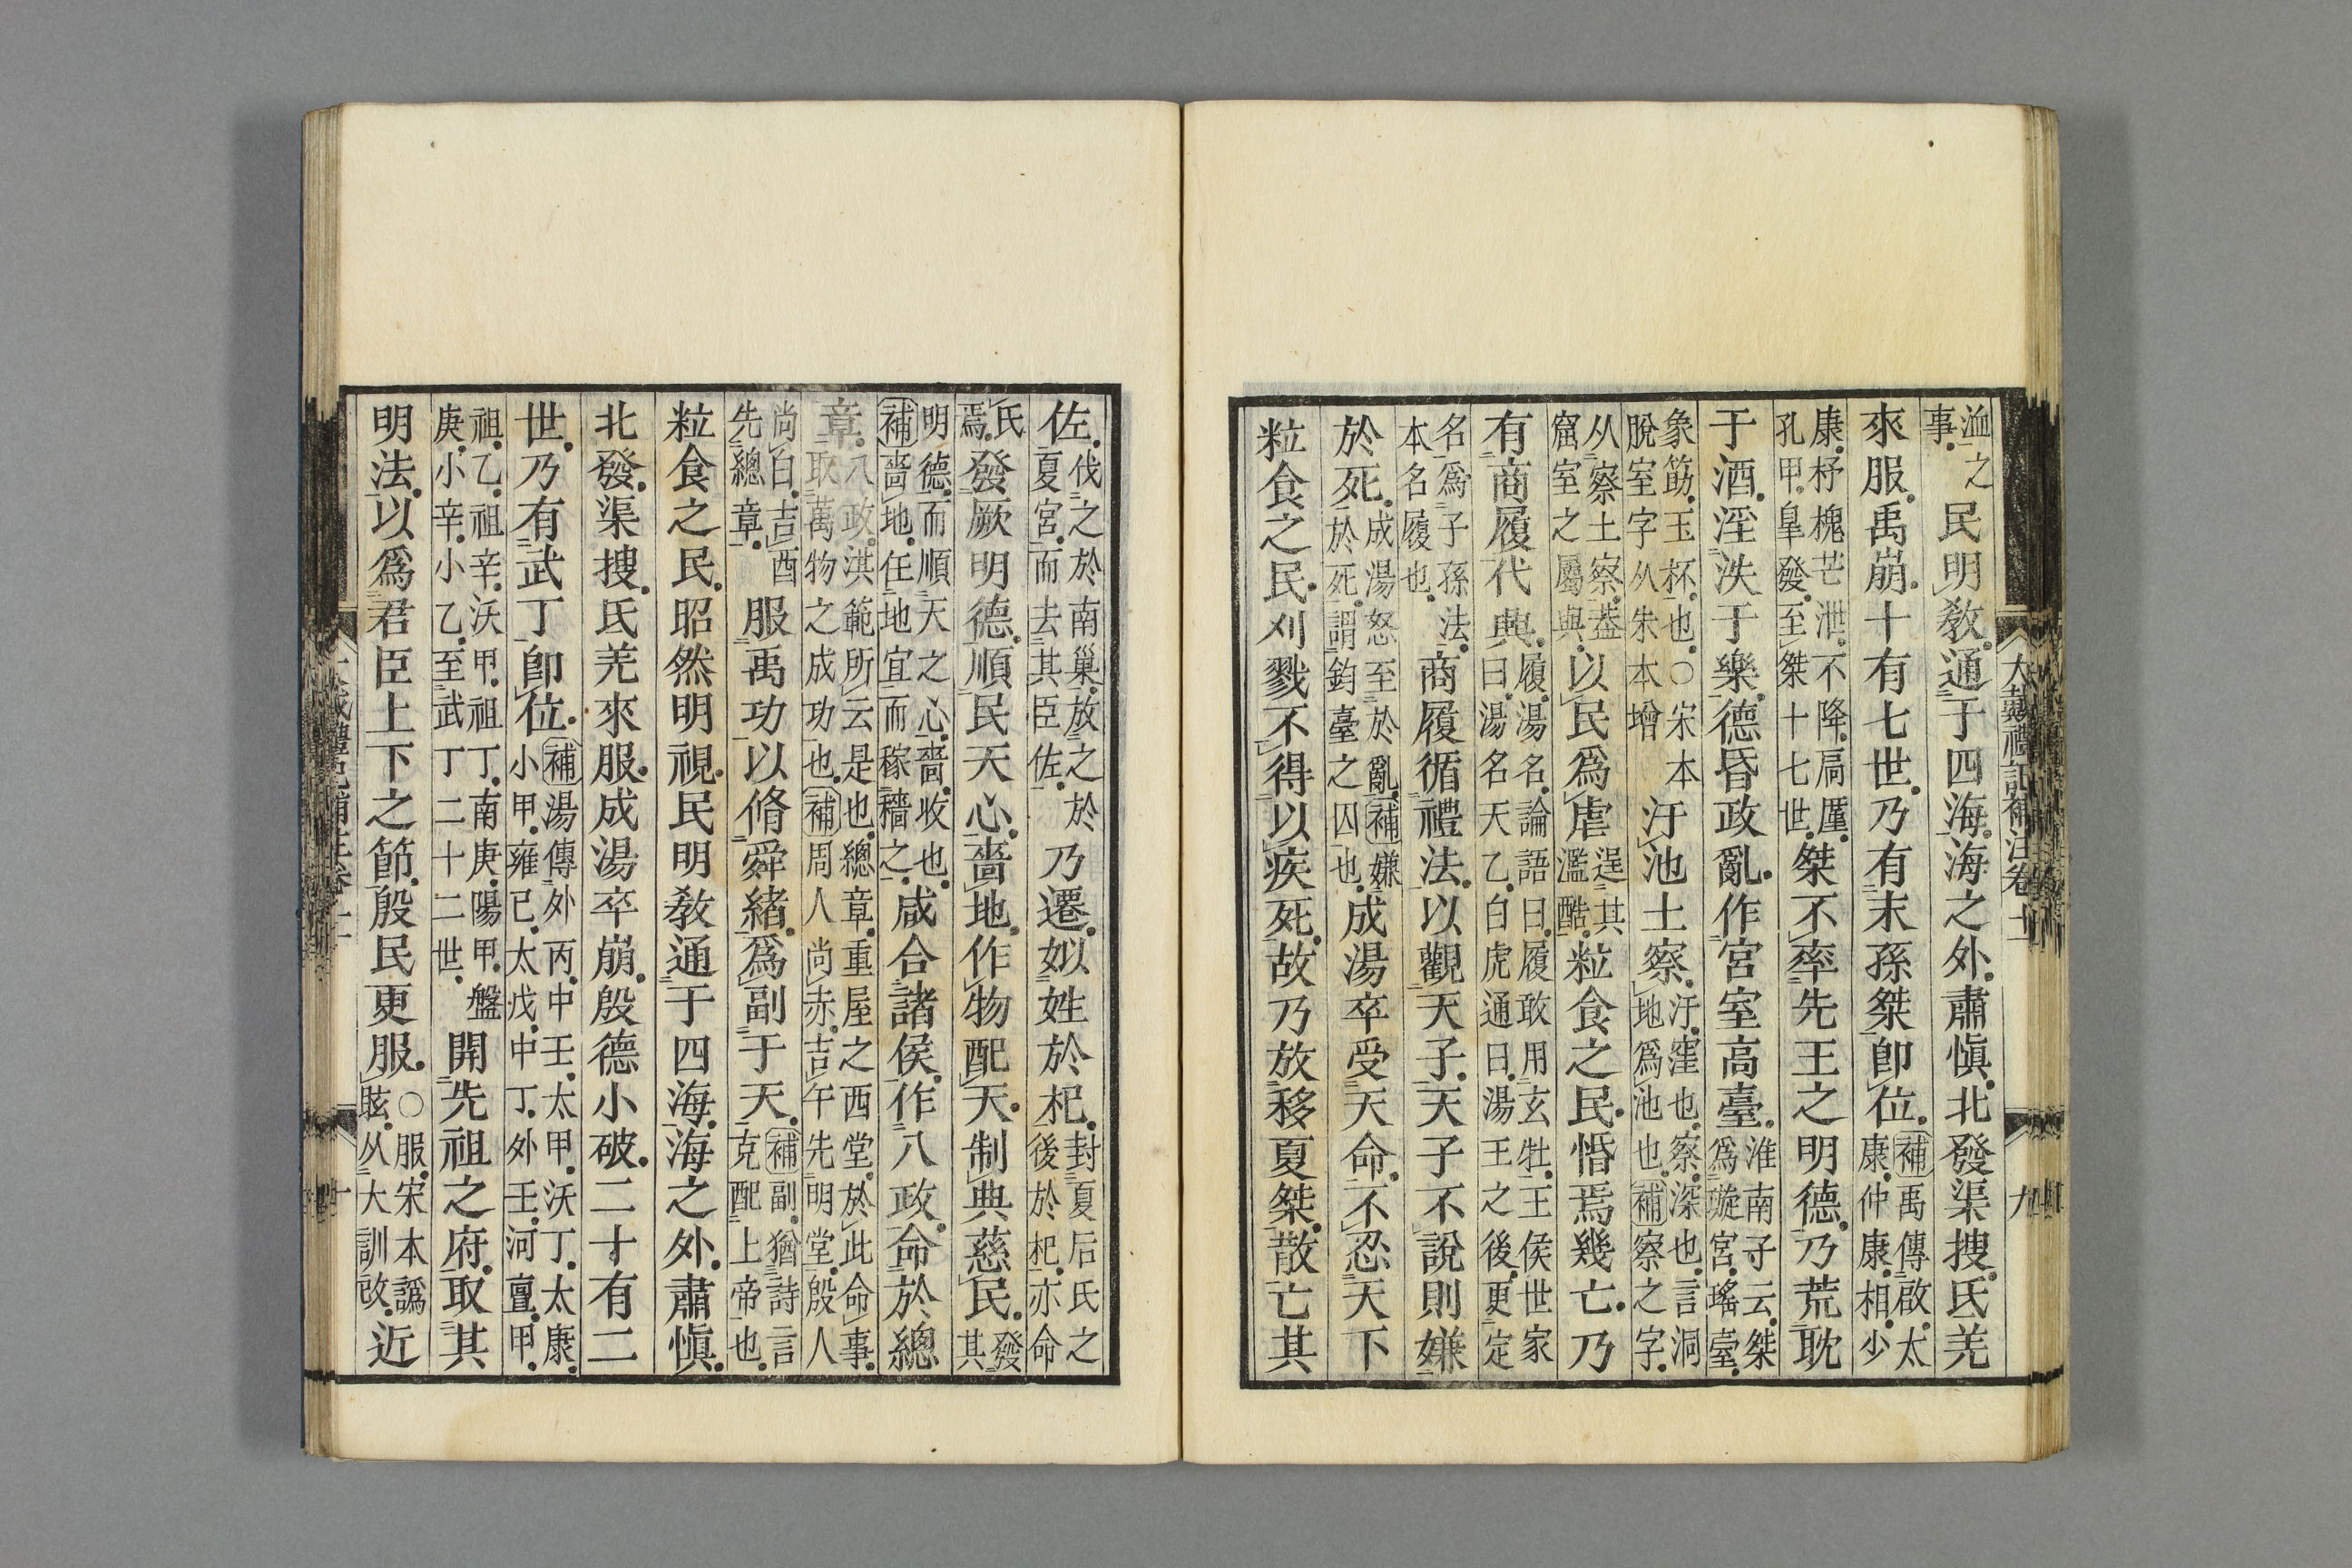 洫之事民明敎通于四海海之外肅愼北發渠搜氐羌
來服禹崩十有七世乃有末孫桀卽位補禹傳啟太康仲康相少
康杼槐芒泄不降扃厪孔甲皐發至桀十七世桀不率先王之明德乃荒耽
于酒淫泆于樂德昏政亂作宮室高臺淮南子云桀爲璇宮瑤臺
象筯玉杯也○宋本脫室字从朱本增汙池土察汙窪也察深也言洞地爲池也補察之字
从察土察葢窟室之屬與以民爲虐逞其濫酷粒食之民惛焉幾亡乃
有商履代興履湯名論語曰履敢用玄牡王侯世家曰湯名天乙白虎通曰湯王之後更定
名爲子孫法本名履也商履循禮法以觀天子天子不說則嫌
於死成湯怒至於亂補嫌於死謂鈞臺之囚也成湯卒受天命不忍天下
粒食之民刈戮不得以疾死故乃放移夏桀散亡其
大戴禮記補注卷十一
九
佐伐之於南巢放之於夏宮而去其臣佐乃遷姒姓於杞封夏后氏之後於杞亦命
氏焉發厥明德順民天心嗇地作物配天制典慈民發其
明德而順天之心嗇收也補嗇地任地宜而稼穡之咸合諸侯作八政命於總
章八政洪範所云是也總章重屋之西堂於此命事取萬物之成功也補周人尚赤吉午先明堂殷人
尚白吉酉先總章服禹功以脩舜緖爲副于天補副猶詩言克配上帝也
粒食之民昭然明視民明敎通于四海海之外肅愼
北發渠搜氐羌來服成湯卒崩殷德小破二十有二
世乃有武丁卽位補湯傳外丙中壬太甲沃丁太康小甲雍已太戊中丁外壬河亶甲
祖乙祖辛沃甲祖丁南庚陽甲盤庚小辛小乙至武丁二十二世開先祖之府取其
明法以爲君臣上下之節殷民更服○服宋本譌眩从大訓改近